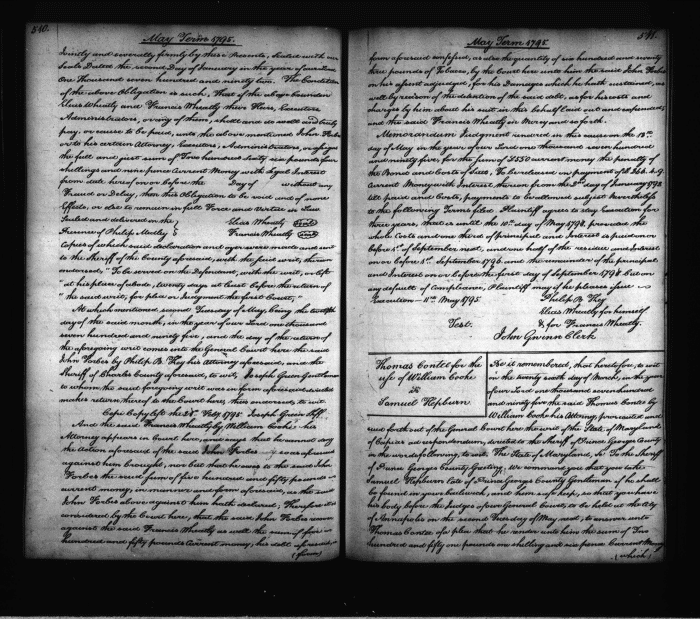 540.
May Term 1795.
Jointly and severally firmly by these Presents, Sealed with our
Seals Dated the second Day of January in the year of our Lord
One Thousand seven hundred and ninety two. The Condition
of the above Obligation is such, That if the above bounden
Elias Wheatly and Francis Wheatly their Heirs, Executors
Administrators, or any of them, shall and do well and truly
pay, or cause to be paid, unto the above mentioned John Forbes
or to his certain Attorney, Executors, Administrators, or assigns
the full and just sum of Two hundred Sixty six pounds four
shillings and nine pence Current Money with Legal Interest
from date hereof on or before the Day of without any
Fraud or Delay, then this Obligation to be void and of none
Effect, or else to remain in full Force and Virtue in Law
Sealed and delivered in the Elias Wheatly Seal
Presence of Philip Fluhrey Francis Wheatly Seal
Copies of which said declaration and oyer were made and sent
to the Sheriff of the County aforesaid, with the said writ, thereon
endorsed, "To be served on the Defendant, with the writ, or left
"at his place of abode, twenty days at least before the return of
"the said writ, for plea or Judgment the first Court,"
At which mentioned second Tuesday of May, being the twelfth
day of the said month, in the year of our Lord one thousand seven
hundred and ninety five, and the day of the return of
the aforegoing writ comes into the General Court here the said
John Forbes by Philip B. Key his Attorney aforesaid, and the
Sheriff of Charles County aforesaid, to wit, Joseph Green Gentleman
to whom the said foregoing writ was in form aforesaid directed
makes return thereof to the Court here, thus endorsed, to wit.
Cepi Copy left the 28th Feby 1795 Joseph Green Shff.
And the said Francis Wheatly by William Cooke his
Attorney appears in Court here, and says that he cannot deny
the Action aforesaid of the said John Forbes so as aforesaid
against him brought, nor but that he owes to the said John
Forbes the said sum of five hundred and fifty pounds
current money, in manner and form aforesaid, as the said
John Forbes above against him hath declared; Therefore it is
considered by the Court here, that the said John Forbes recover
against the said Francis Wheatly as well the sum of five
hundred and fifty pounds Current money, his debt aforesaid in
(form)
541.
May Term 1795
form aforesaid confessed, as also the quantity of six hundred and seventy
three pounds of Tobacco, by the Court here unto him the said John Forbes
on his assent adjudged, for his Damages which he hath sustained, as
well by reason of the detention of the said debt, as for his costs and
charges by him about his suit in this behalf laid out and expended;
and the said Francis Wheatly in Mercy and so forth.
Memorandum Judgment entered in this cause on the 13th
day of May in the year of our Lord one thousand seven hundred
and ninety five, for the sum of £550 current money the penalty of
the Bond and Costs of Suit. To be released on payment of £266.4.9
Current Money with Interest thereon from the 2nd day of January 1792
till paid and Costs, payments to be allowed subject Nevertheless
to the following Terms filed. Plaintiff agrees to stay Execution for
three years, that is until the 10th day of May 1798, provided the
whole Costs and one third of principal and Interest is paid on or
before 1st of September next, and one half of the residue and Interest
on or before 1st September 1796 and the remainder of the principal
and Interest on or before the first day of September 1797 but on
any default of Compliance, Plaintiff may if he pleases issue
Execution – 11th May 1795.
Philip B. Key.
Elias Wheatly for himself
& for Francis Wheatly.
Test.
John Gwinn Clerk
Thomas Contee for the
use of William Cooke
vs
Samuel Hepburn
Be it remembered, that heretofore, to wit
on the twenty sixth day of March, in the year
of our Lord one thousand seven hundred
and ninety five the said Thomas Contee by
William Cooke his Attorney, prosecuted and
sued forth out of the General Court here the writ of the State of Maryland,
of Capias ad respondendum, directed to the Sheriff of Prince Georges County
in the words following, to wit. The State of Maryland, Sc. To the Sheriff
of Prince Georges County, Greeting. We command you that you take
Samuel Hepburn late of Prince Georges County Gentleman if he shall
be found in your bailiwick, and him safe keep, so that you have
his body before the Judges of our General Court, to be held at the City
of Annapolis on the second Tuesday of May next, to answer unto
Thomas Contee of a plea that he render unto him the sum of Two
hundred and fifty one pounds one shilling and six pence Current Money
(which)